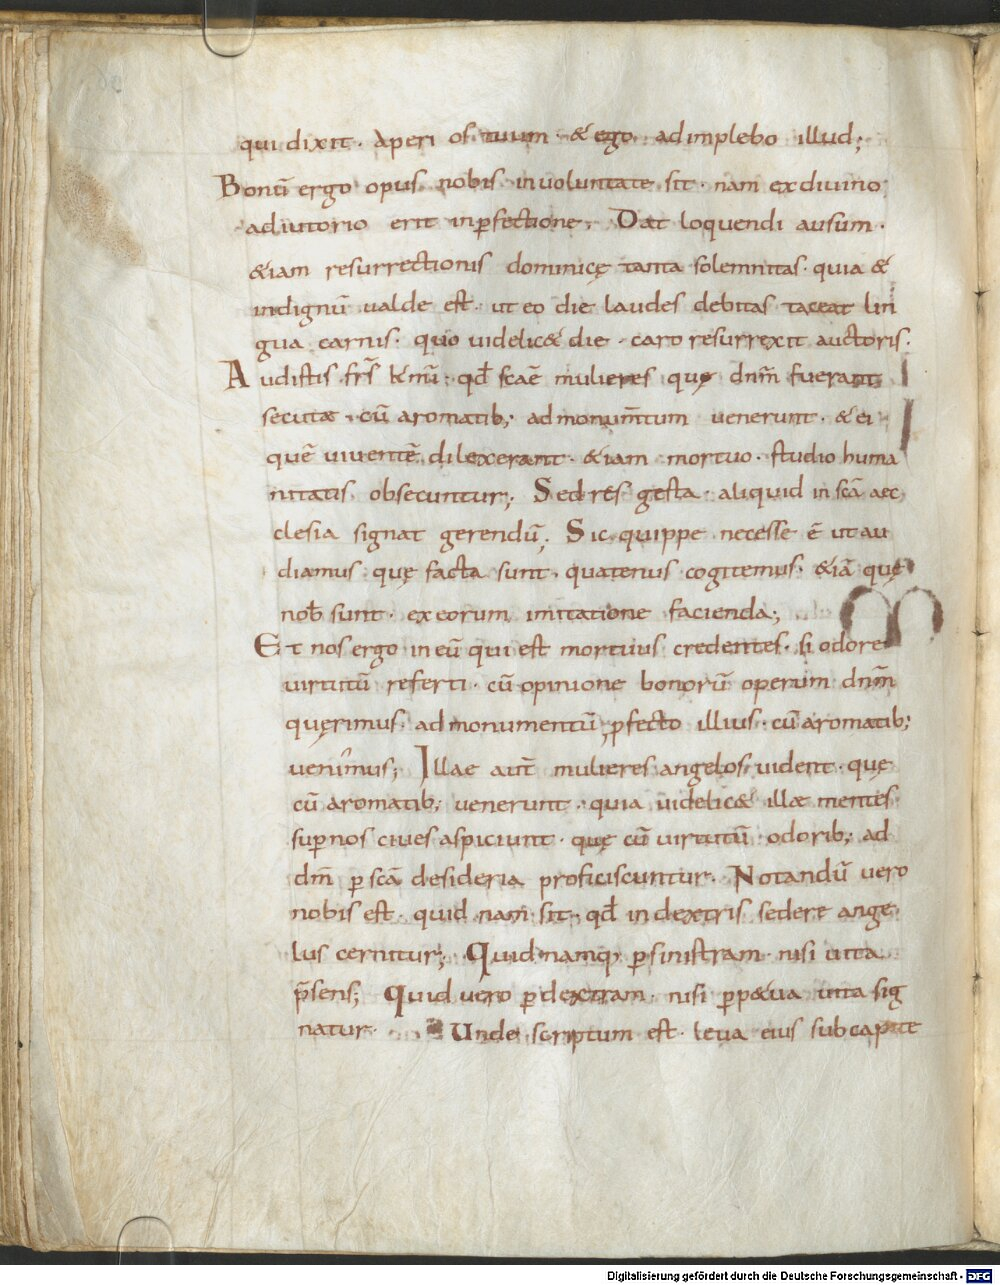 qui dixit · Aperi os tuum · & ego adimplebo illud;
Bonū ergo opus nobis in uoluntate sit · nam ex diuino
adiutorio erit in ꝑfectione; Dat loquendi ausum ·
&iam resurrectionis dominicę tanta solemnitas · quia &
indignū ualde est · ut eo die laudes debitas taceat lin
gua carnis · quo uidelic& die · caro resurrexit auctoris ·
Audistis frs̄ km̄i · qd̄ scāe mulieres quę dnm̄ fuerant
secutae · cū aromatib; ad monum̄tum uenerunt · & ei
quē uiuentē dilexerant · &iam mortuo · studio huma
nitatis obsecuntur; Sed res gesta · aliquid in scā aec
clesia signat gerendū; Sic quippe necesse ē ut au
diamus quę facta sunt · quatenus cogitemus · &iā quę
nob̄ sunt · ex eorum imitatione facienda;
Et nos ergo in eū qui est mortuus credentes · si odore
uirtutū referti · cū opinione bonorū operum dnm̄
quęrimus · ad monumentū ꝓfecto illius · cū aromatib;
uenimus; Illae aut̄ mulieres angelos uident · quę
cū aromatib; uenerunt · quia uidelic& illae mentes
suꝑnos ciues aspiciunt · quę cū uirtutū odorib; ad
dm̄ ꝑ scā desideria proficiscuntur · Notandū uero
nobis est · quid nam sit · qd̄ in dextris sedere ange
lus cernitur; Quid namq; ꝑ sinistram · nisi uita
p̄sens; Quid uero ꝑ dextram · nisi ꝑp&ua uita sig
natur · Unde scriptum est · leua eius sub capite
Digitalisierung gefördert durch die Deutsche Forschungsgemeinschaft - DFG